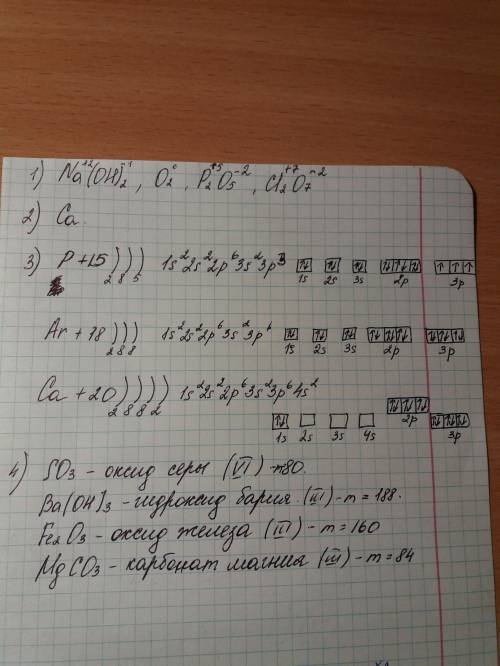 1) Na⁺²(OH)₂⁻¹, O₂⁰, P₂⁺⁵O₅⁻², Cl₂⁺⁷O₇⁻²
2) Ca
3) P +15 ) ) ) 1s²2s²2p⁶3s²3p³ ↑↓ ↑↓ ↑↓ ↑↓↑↓↑↓ ↑ ↑ ↑
2 8 5 1s 2s 3s 2p 3p
Ar +18 ) ) ) 1s²2s²2p⁶3s²3p⁶ ↑↓ ↑↓ ↑↓ ↑↓↑↓↑↓ ↑↓↑↓↑↓
2 8 8 1s 2s 3s 2p 3p
Ca +20 ) ) ) ) 1s²2s²2p⁶3s²3p⁶4s² ↑↓ ↑↓↑↓↑↓ ↑↓↑↓↑↓
2 8 8 2 1s 2s 3s 4s 2p 3p
4) SO₃ – оксид серы (VI) – m80.
Ba(OH)₃ – гидроксид бария (III) – m = 188.
Fe₂O₃ – оксид железа (III) – m = 160
MgCO₃ – карбонат магния (III) – m = 84